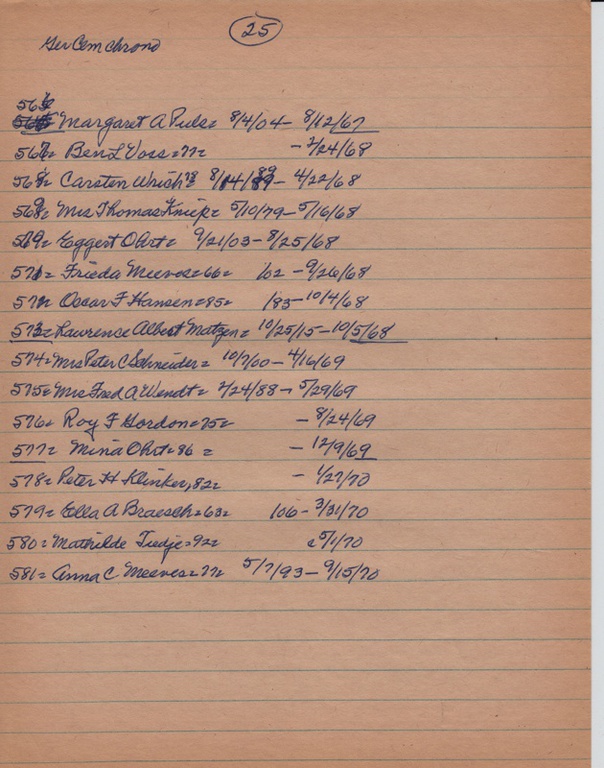 25
Ger Cem chrono
566= Margaret A Puls= 8/4/04 - 8/12/67
567= Ben L Voss=77= - 7/24/68
568= Carsten Wrich= 78 8/14/89 - 4/22/68
568= Mrs Thomas Kniep= 5/10/79 - 5/16/68
569= Eggert Ohrt= 9/21/03 - 8/25/68
571= Frieda Meeves=66= /02 - 9/26/68
572= Oscar F Hansen=85= /83 - 10/4/68
573= Lawrence Albert Matzen= 10/25/15 - 10/5/68
574= Mrs Peter C Schneider= 10/7/00 - 4/16/69
575= Mrs Fred A Wendt= 2/24/88 - 5/29/69
576= Roy F Gordon=75= - 8/24/69
577= Mina Ohrt=86= - 12/9/69
578= Peter H Klinker, 82= - 1/27/70
579= Ella A Braesch=63= /06 - 3/31/70
580= Mathilde Tiedje=92= c 5/1/70
581= Anna C. Meeves=77= 5/7/93 - 9/15/70